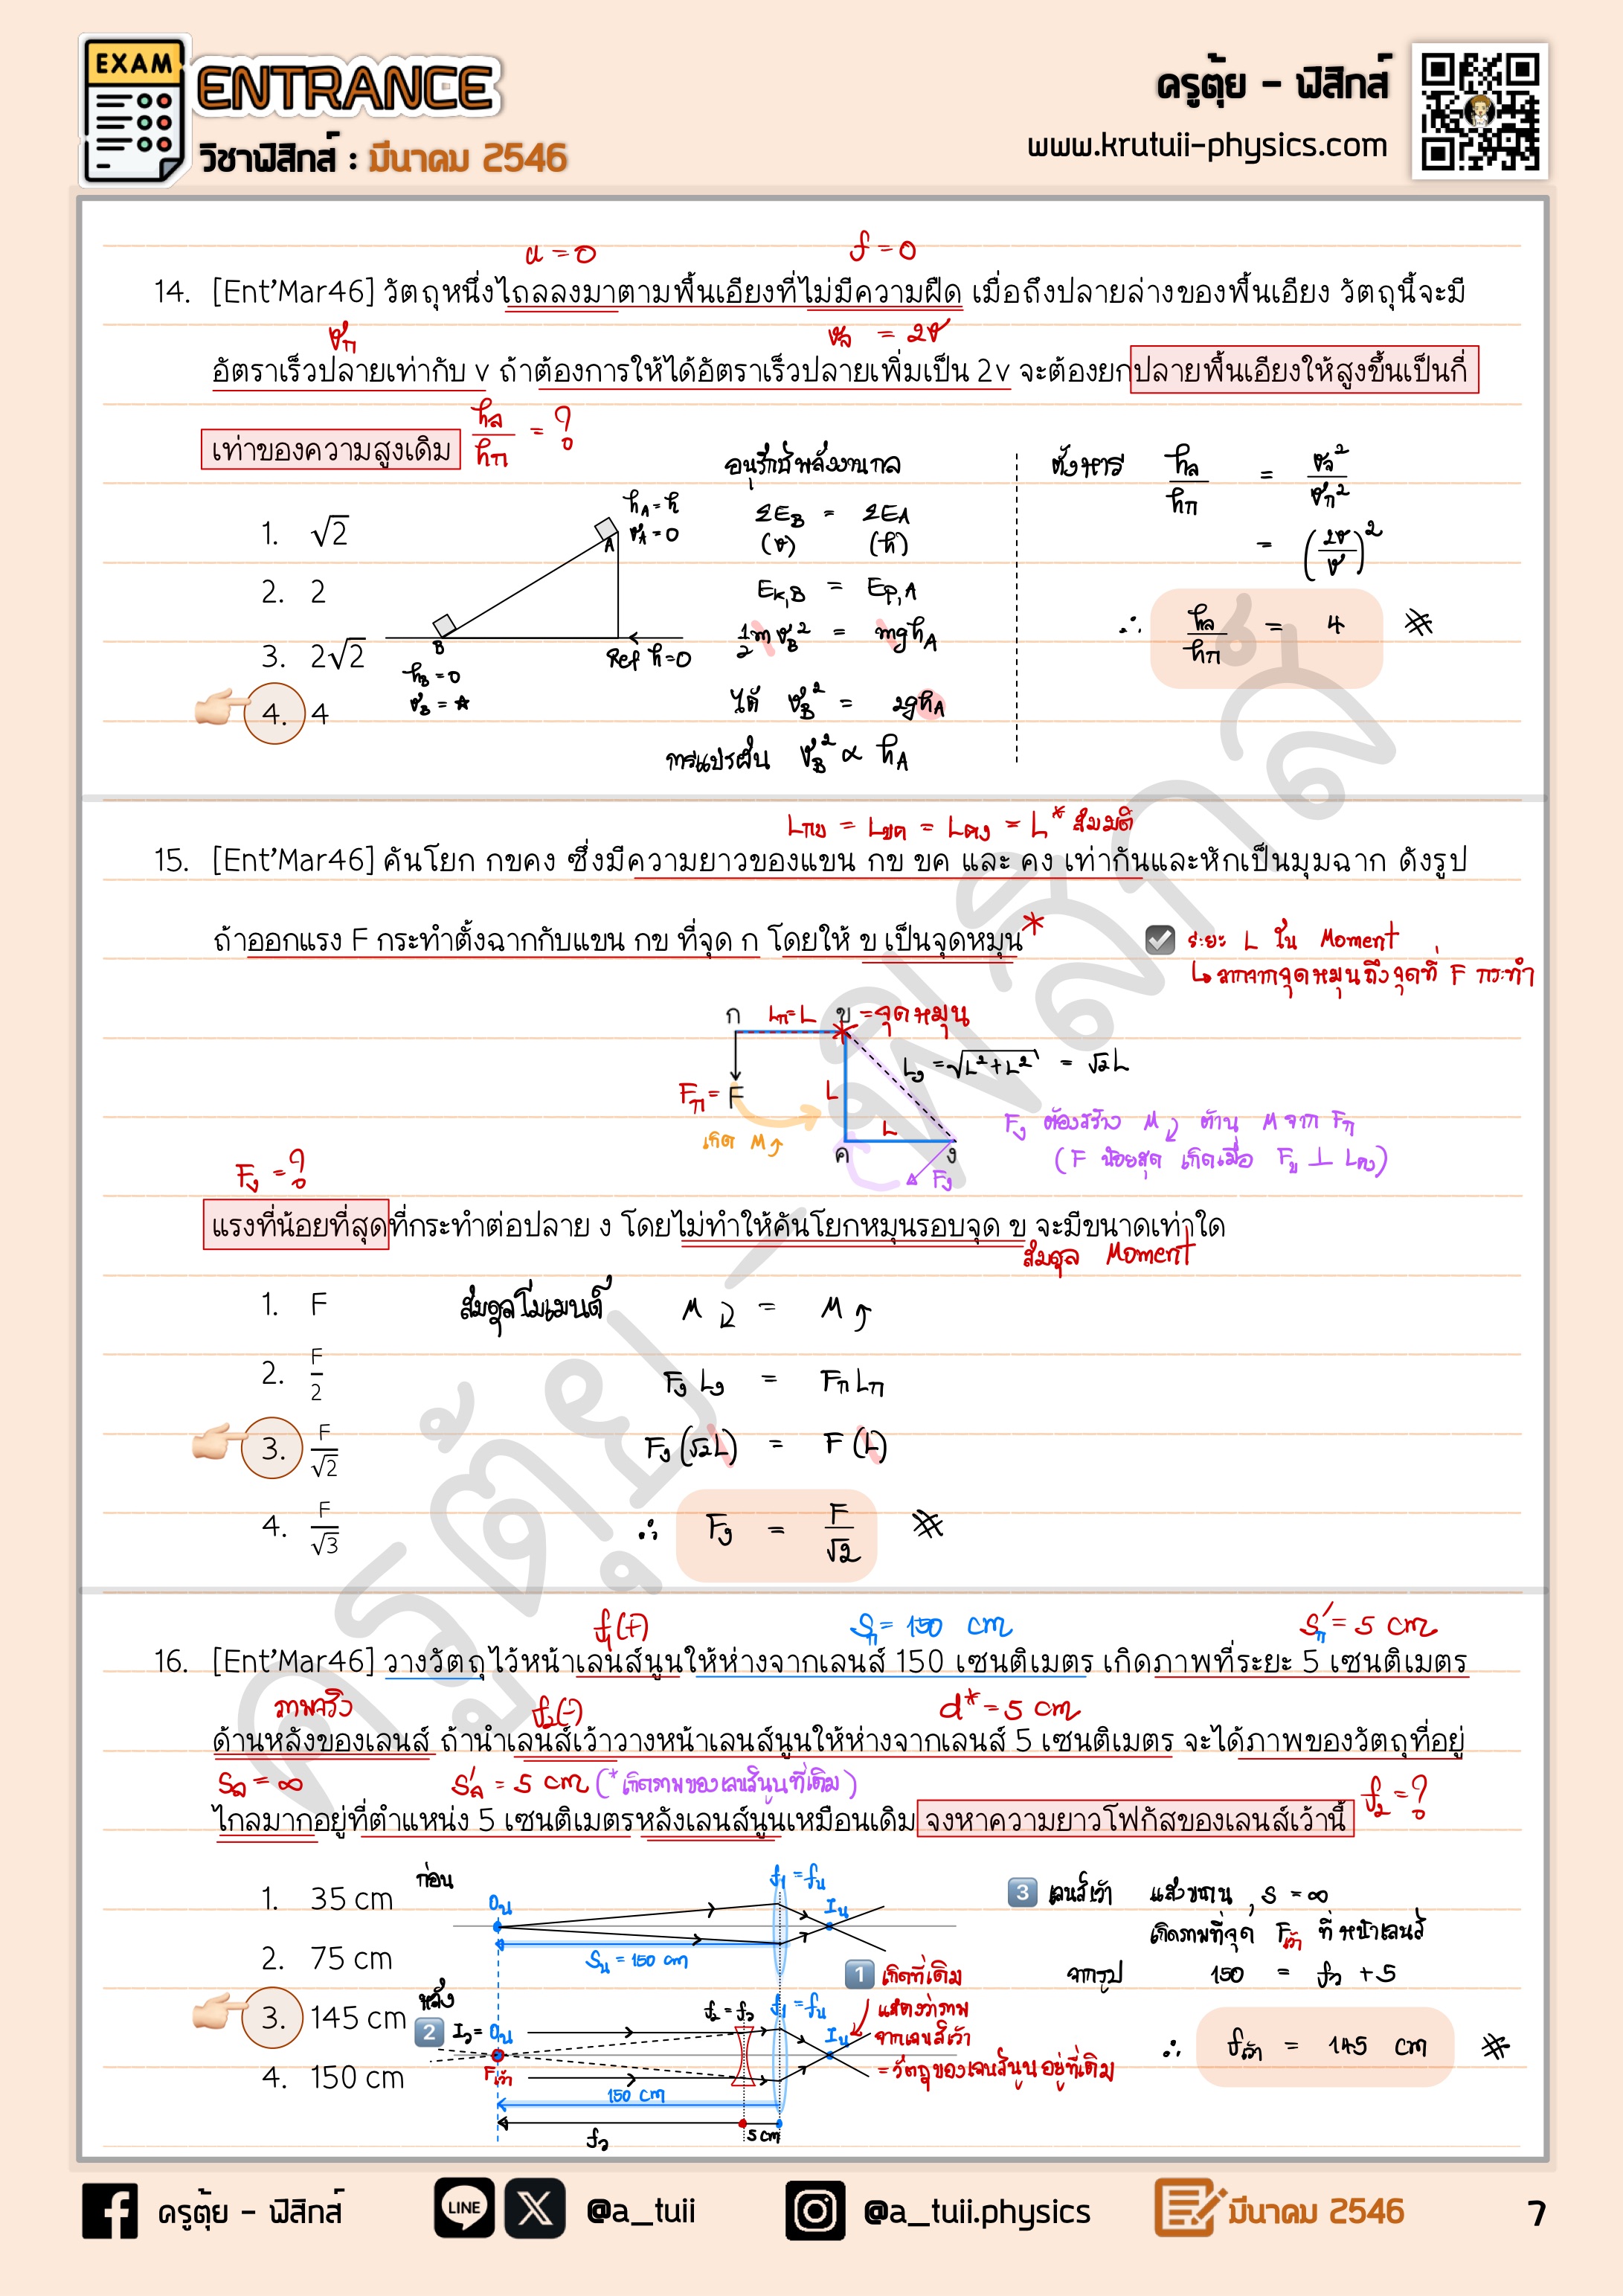 EXAM
ENTRANCE
วิชาฟิสิกส์ : มีนาคม 2546
ครูตุ้ย - ฟิสิกส์
www.krutuii-physics.com
u = 0
f = 0
14. [Ent'Mar46] วัตถุหนึ่งไถลลงมาตามพื้นเอียงที่ไม่มีความฝืด เมื่อถึงปลายล่างของพื้นเอียง วัตถุนี้จะมี
vก
vล = 2v
อัตราเร็วปลายเท่ากับ v ถ้าต้องการให้ได้อัตราเร็วปลายเพิ่มเป็น 2v จะต้องยกปลายพื้นเอียงให้สูงขึ้นเป็นกี่
เท่าของความสูงเดิม
hล/hก = ?
1. √2
2. 2
3. 2√2
4. 4
hA = h
vA = 0
A
B
hB = 0
vB = ☆
Ref h=0
อนุรักษ์พลังงานกล
ΣEB = ΣEA
(v) (h)
Ek,B = Ep,A
½mvB² = mghA
ได้ vB² = 2ghA
การแปรผัน vB² ∝ hA
ตั้งหาร hล/hก = vล²/vก²
= (2v/v)²
∴ hล/hก = 4 #
Lกข = Lขค = Lคง = L* สมมติ
15. [Ent'Mar46] คันโยก กขคง ซึ่งมีความยาวของแขน กข ขค และ คง เท่ากันและหักเป็นมุมฉาก ดังรูป
ถ้าออกแรง F กระทำตั้งฉากกับแขน กข ที่จุด ก โดยให้ ข เป็นจุดหมุน*
ระยะ L ใน Moment
↳ ลากจากจุดหมุนถึงจุดที่ F กระทำ
ก Lก=L ข =จุดหมุน
Lง = √L²+L² = √2L
Fก = F
L
L
เกิด M
ค ง
Fง
Fง ต้องสร้าง M ต้าน M จาก Fก
(F น้อยสุด เกิดเมื่อ Fง ⊥ Lคง)
Fง = ?
แรงที่น้อยที่สุดที่กระทำต่อปลาย ง โดยไม่ทำให้คันโยกหมุนรอบจุด ข จะมีขนาดเท่าใด
สมดุล Moment
1. F
2. F/2
3. F/√2
4. F/√3
สมดุลโมเมนต์ M = M
Fง Lง = Fก Lก
Fง (√2L) = F (L)
∴ Fง = F/√2 #
f1(+)
Sก = 150 cm
Sก' = 5 cm
16. [Ent'Mar46] วางวัตถุไว้หน้าเลนส์นูนให้ห่างจากเลนส์ 150 เซนติเมตร เกิดภาพที่ระยะ 5 เซนติเมตร
ภาพจริง
f2(-)
d* = 5 cm
ด้านหลังของเลนส์ ถ้านำเลนส์เว้าวางหน้าเลนส์นูนให้ห่างจากเลนส์ 5 เซนติเมตร จะได้ภาพของวัตถุที่อยู่
Sล = ∞
S'ล = 5 cm (*เกิดภาพของเลนส์นูนที่เดิม)
f2 = ?
ไกลมากอยู่ที่ตำแหน่ง 5 เซนติเมตรหลังเลนส์นูนเหมือนเดิม จงหาความยาวโฟกัสของเลนส์เว้านี้
1. 35 cm
2. 75 cm
3. 145 cm
4. 150 cm
ก่อน
Oน
f1 = fน
Iน
Sน = 150 cm
หลัง
2 Iว = Oน
f2 = fว
f1 = fน
Iน
Fเว้า
150 cm
fว
5 cm
1 เกิดที่เดิม
แสดงว่าภาพ
จากเลนส์เว้า
= วัตถุของเลนส์นูนอยู่ที่เดิม
3 เลนส์เว้า แสงขนาน , S = ∞
เกิดภาพที่จุด Fเว้า ที่หน้าเลนส์
จากรูป 150 = fว + 5
∴ fเว้า = 145 cm #
ครูตุ้ย - ฟิสิกส์
ครูตุ้ย - ฟิสิกส์
LINE
@a_tuii
@a_tuii.physics
มีนาคม 2546
7